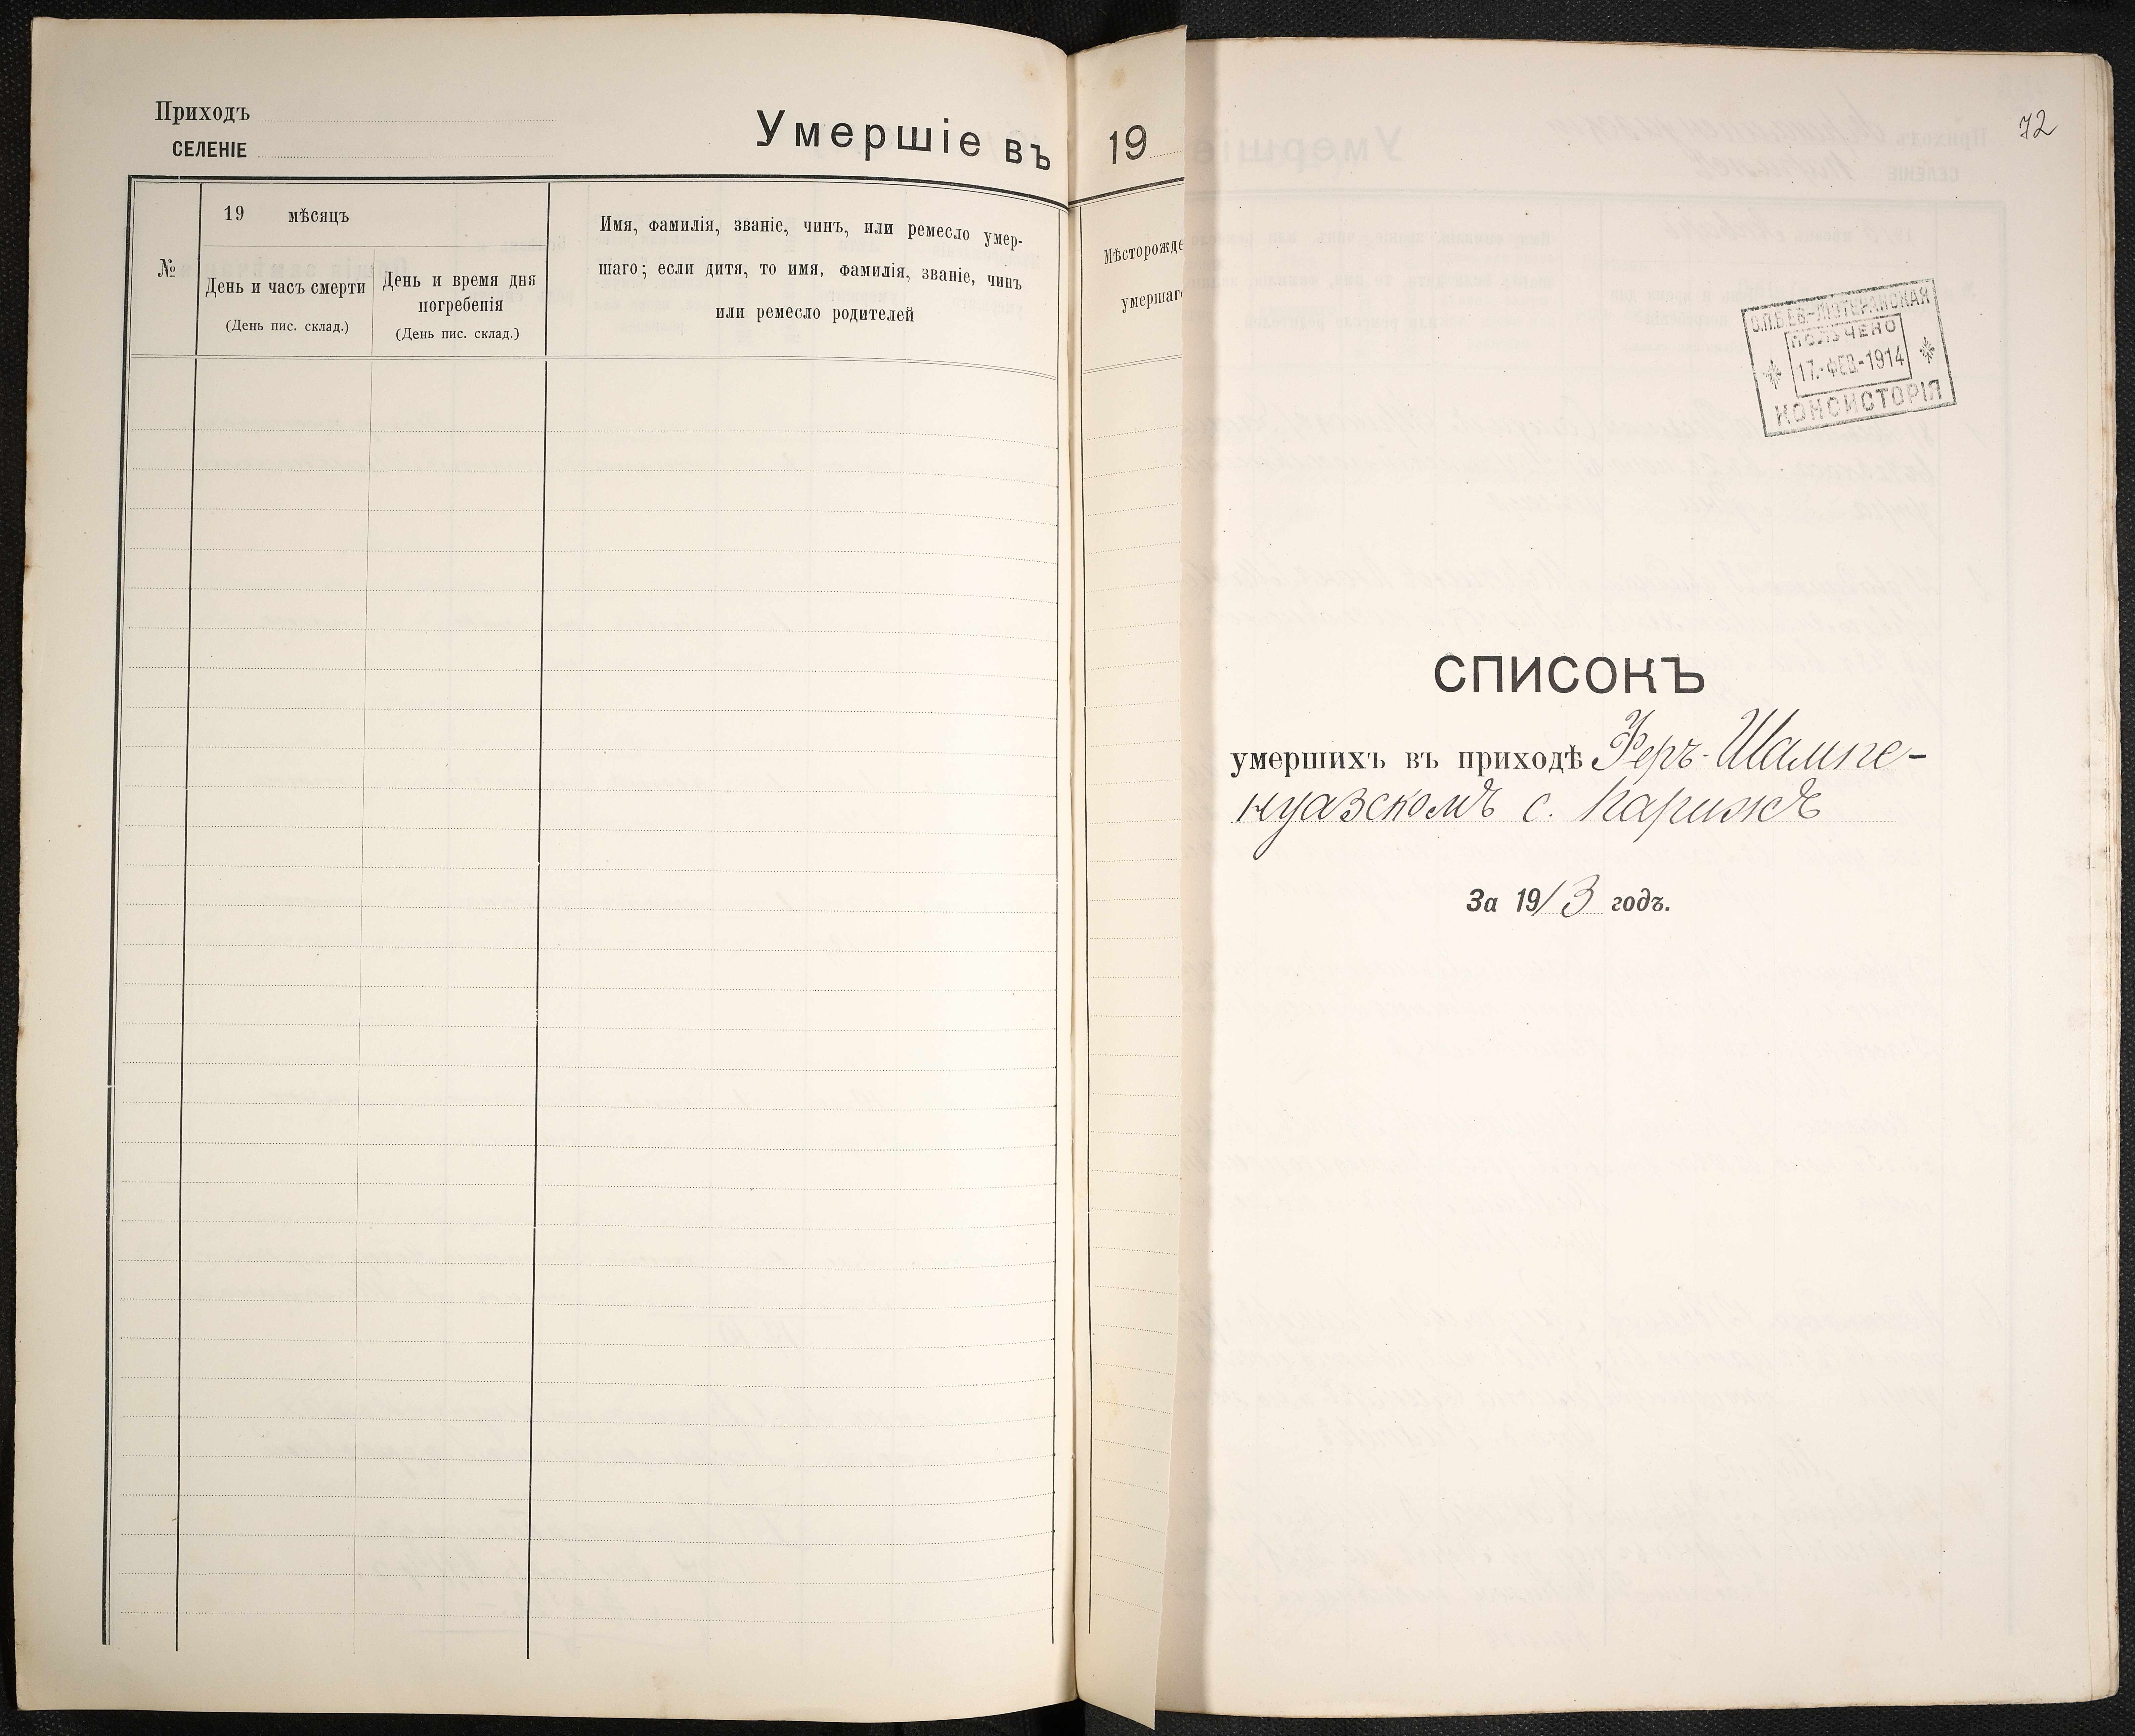 Приходъ
СЕЛЕНІЕ
Умершіе въ 19
№
19 мѣсяцъ
День и часъ смерти
(День пис. склад.)
День и время дня
погребенія
(День пис. склад.)
Имя, фамилія, званіе, чинъ, или ремесло умер-
шаго; если дитя, то имя, фамилія, званіе, чинъ
или ремесло родителей
Мѣсторожде
умершаг
72
С.П.Б. ЕВ.-ЛЮТЕРАНСКАЯ
ПОЛУЧЕНО
17.-ФЕВ.-1914
КОНСИСТОРІЯ
СПИСОКЪ
умершихъ въ приходѣ Феръ-Шампе-
нуазскомъ с. Парижѣ
За 1913 годъ.